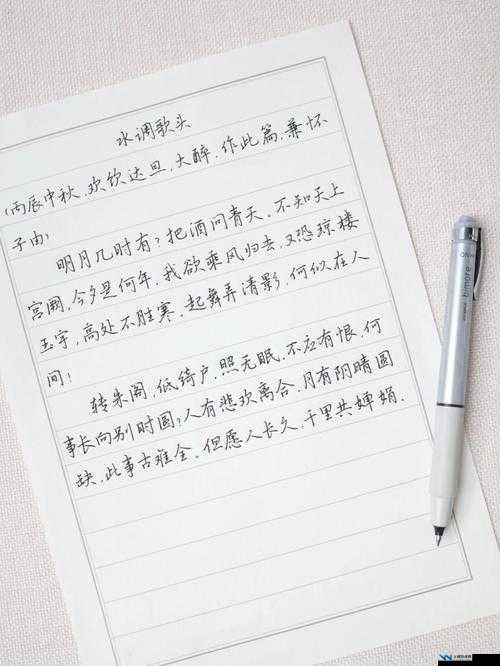 水调歌头
(丙辰中秋,欢饮达旦,大醉,作此篇,兼怀
子由)
明月几时有?把酒问青天。不知天上
宫阙,今夕是何年,我欲乘风归去,又恐琼楼
玉宇,高处不胜寒,起舞弄清影,何似在人
间!
转朱阁,低绮户,照无眠,不应有恨,何
事长向别时圆?人有悲欢离合,月有阴晴圆
缺,此事古难全。但愿人长久,千里共婵娟.
bimore